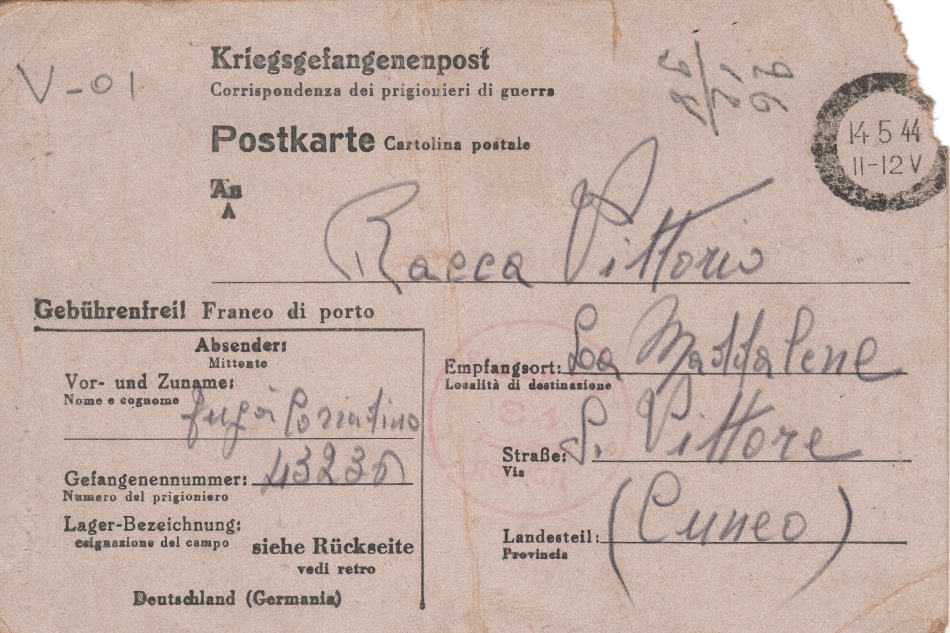 V-01
Kriegsgefangenenpost
Corrispondenza dei prigionieri di guerra
Postkarte Cartolina postale
14 5 44
11-12 V
An
A
Racca Vittorio
Gebührenfrei! Franco di porto
Absender:
Mittente
Vor- und Zuname:
Nome e cognome
Gefangenennummer: 43236
Numero del prigioniero
Lager-Bezeichnung:
esignazione del campo
siehe Rückseite
vedi retro
Deutschland (Germania)
Empfangsort: La Maddalene
Località di destinazione
Straße: S. Vittore
Via
Landesteil: (Cuneo)
Provincia